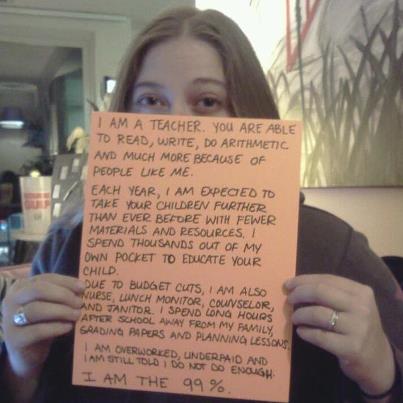 I AM A TEACHER. YOU ARE ABLE
TO READ, WRITE, DO ARITHMETIC
AND MUCH MORE BECAUSE OF
PEOPLE LIKE ME.
EACH YEAR, I AM EXPECTED TO
TAKE YOUR CHILDREN FURTHER
THAN EVER BEFORE WITH FEWER
MATERIALS AND RESOURCES. I
SPEND THOUSANDS OUT OF MY
OWN POCKET TO EDUCATE YOUR
CHILD.
DUE TO BUDGET CUTS, I AM ALSO
NURSE, LUNCH MONITOR, COUNSELOR,
AND JANITOR. I SPEND LONG HOURS
AFTER SCHOOL AWAY FROM MY FAMILY,
GRADING PAPERS AND PLANNING LESSONS.
I AM OVERWORKED, UNDERPAID AND
I AM STILL TOLD I DO NOT DO ENOUGH.
I AM THE 99%.